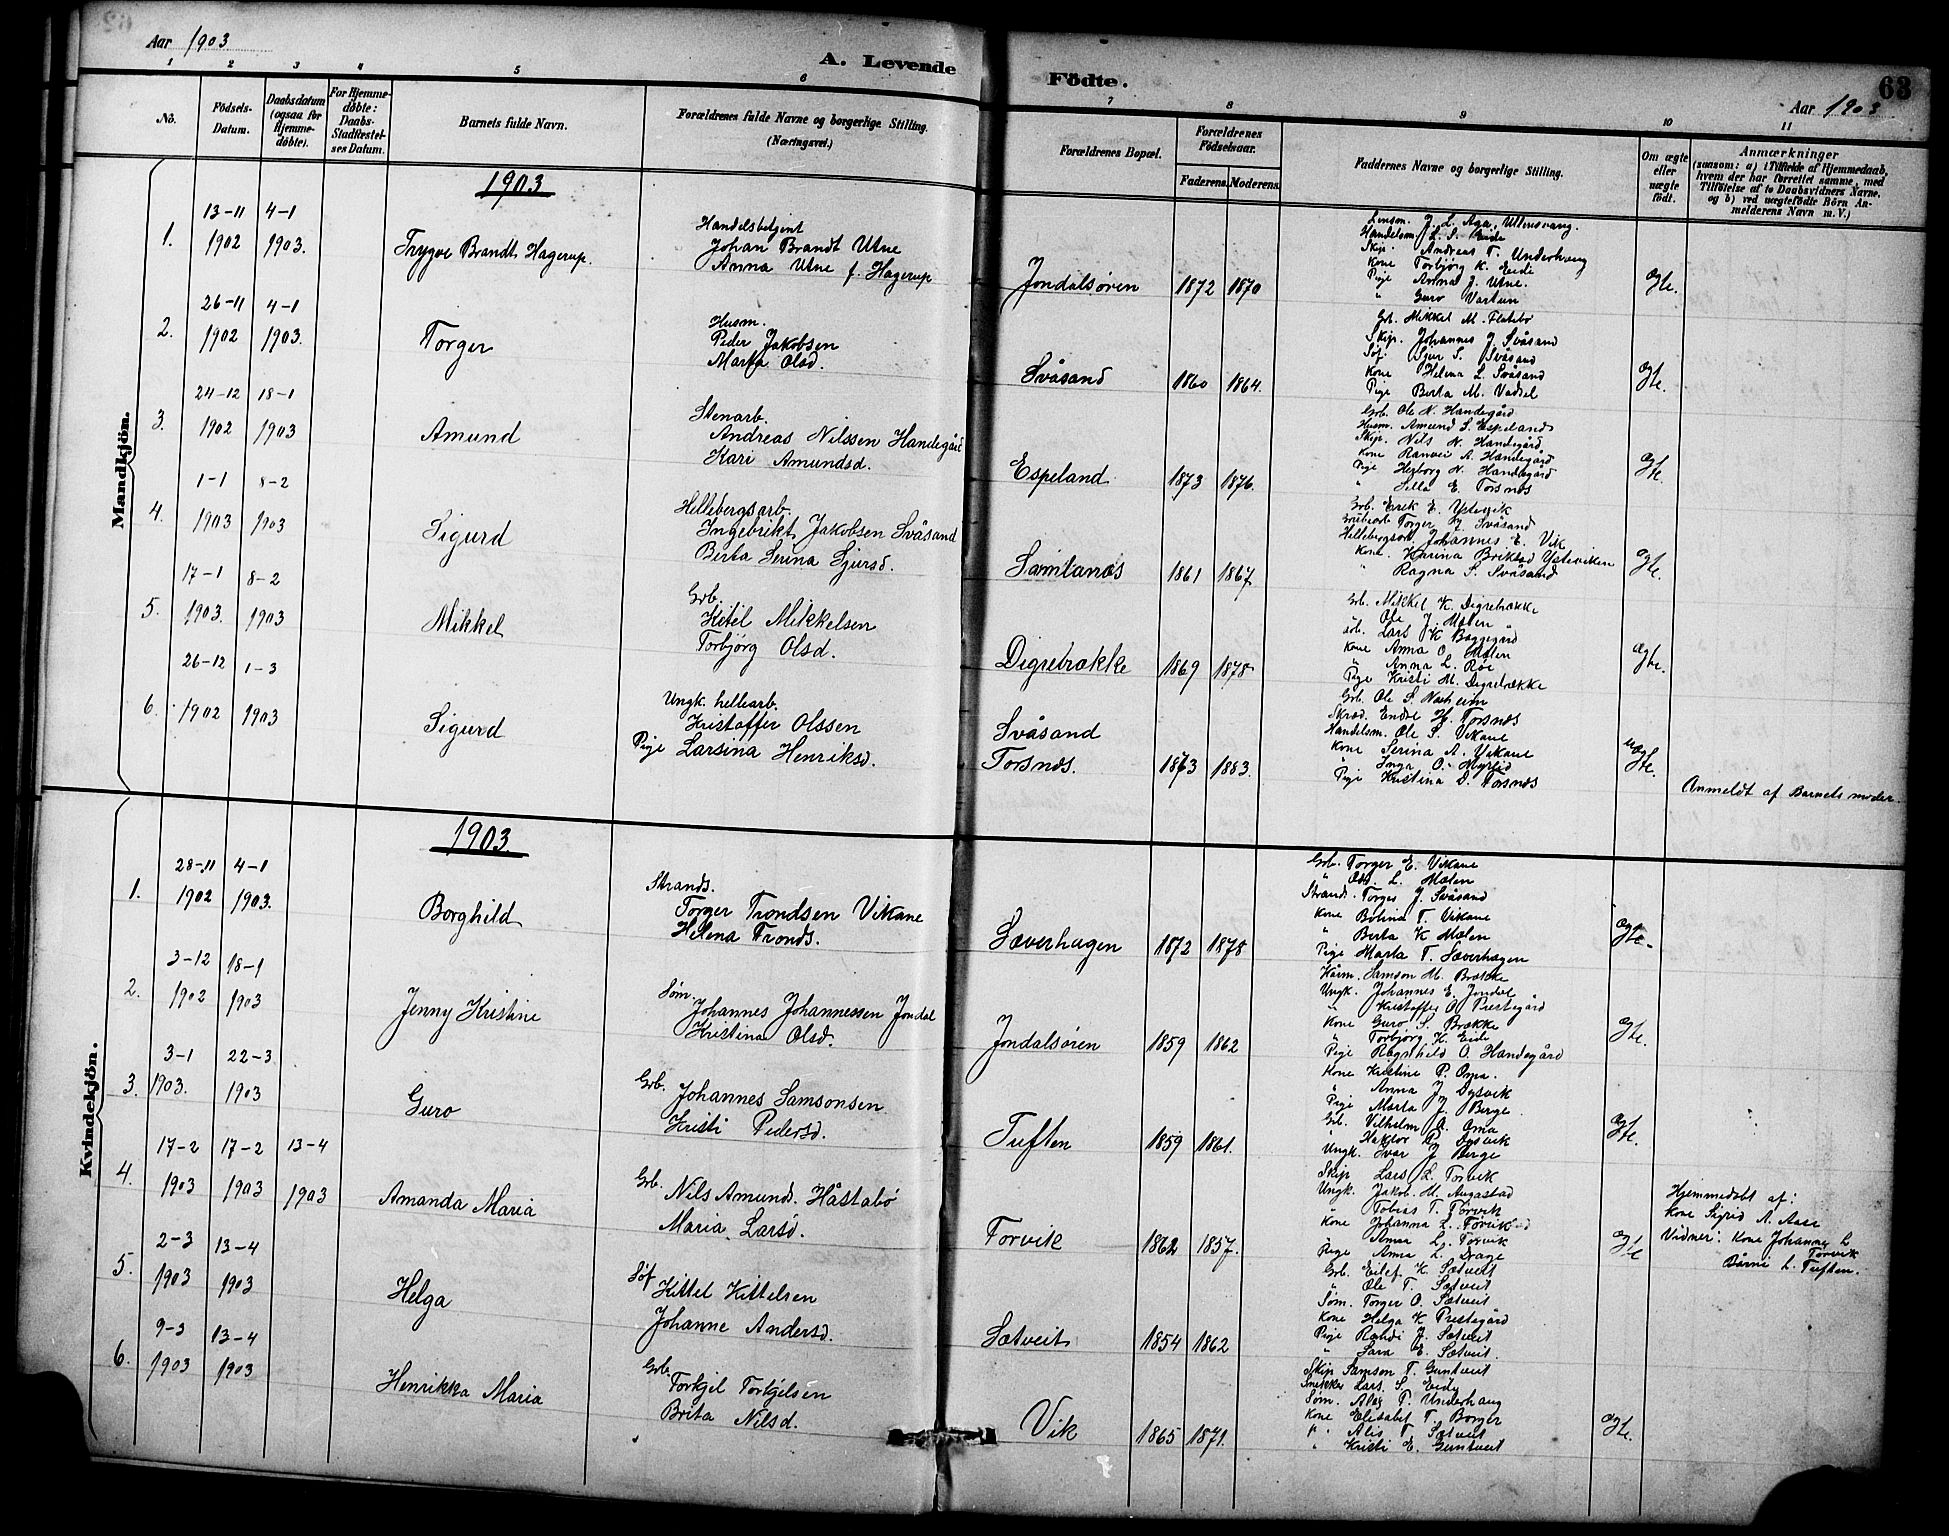 Aar 1903
A. Levende Födte.
63
Aar 1903
1 2 3 4 5 6 7 8 9 10 11
No.
Födsels-Datum.
Daabsdatum (ogsaa for Hjemme-døbte).
For Hjemme-døbte: Daabs-Stadfæstel-ses Datum.
Barnets fulde Navn.
Forældrenes fulde Navne og borgerlige Stilling. (Næringsvei.)
Forældrenes Bopæl.
Forældrenes Födselsaar.
Faderens. Moderens.
Faddernes Navne og borgerlige Stilling.
Om ægte eller uægte født.
Anmærkninger
(saasom: a) i Tilfælde af Hjemmedaab, hvem der har forrettet samme, med Tilföielse af to Daabsvidners Navne, og b) ved uægtefödte Börn An-melderens Navn m. V.)
Mandkjön.
1903
1. 13-11 1902 4-1 1903. Trygve Brandt Hagerup.
Handelsbetjent
Johan Brandt Utne
Anna Utne f. Hagerup
Jondalsøren 1872 1870
J. L. Aga, Ullensvang.
Handelsm. L. S. Eide
Skip. Andreas T. Underhaug
Kone Torbjørg K. Eide
Pige Anna J. Utne.
" Guro
Ægte.
2. 26-11 1902 4-1 1903. Torger
Husm.
Peder Jakobsen
Marta Olsd.
Svåsand 1860 1864.
Grb. Mikkel M. Flatebø
Skip. Johannes J. Svåsand
Søf. Sjur S. Svåsand
Kone Helena L. Svåsand
Pige Berta M.
Ægte.
3. 24-12 1902 18-1 1903 Amund
Stenarb.
Andreas Nilssen Handegård
Kari Amundsd.
Espeland 1873 1876.
Grb. Ole N. Handegård
Husm. Amund S. Espeland
Skip. Nils N. Handegård
Kone Ranvei A. Handegård
Pige Herborg N. Handegård
" Silla E. Torsnes
Ægte.
4. 1-1 1903 8-2 1903 Sigurd
Hellebergsarb.
Ingebrikt Jakobsen Svåsand
Berta Serina Sjursd.
Samlanes 1861 1867.
Grb. Eirik E. Ystevik
Torger J. Svåsand
Hellebergsarb. Johannes E. Vik
Kone. Karina Briktsd Ysteviken
" Ragna S. Svåsand
Ægte.
5. 17-1 1903. 8-2 1903 Mikkel
Grb.
Kitel Mikkelsen
Torbjörg Olsd.
Digrebrække 1869 1878
Grb. Mikkel K. Digrebrække
Ole J. Mælen
Grb. Lars K. Bæggegård
Kone Anna O. Mælen
" Anna L. Røe
Pige Kristi M. Digrebrække
Ægte.
6. 26-12 1902 1-3 1903 Sigurd
Ungk. hellearb.
Kristoffer Olssen
Pige Larsina Henriksd.
Svåsand
Torsnes. 1873 1883.
Grb. Ole S. Næsheim
Skræd. Endre H. Torsnes
Handelsm. Ole S. Vikane
Kone Serina A. Vikane
" Inga O. Myrlid
Pige Kristina D. Torsnes
Uægte.
Anmeldt af Barnets moder.
Kvindekjön.
1903
1. 28-11 1902 4-1 1903. Borghild
Strands.
Torger Trondsen Vikane
Helena Tronds.
Sæverhagen 1872 1878
Grb. Torger E. Vikane
" Ole L. Mælen
Strands. Torger J. Svåsand
Kone Bolina T. Vikane
" Berta K Mælen
Pige Marta T. Sæverhagen
Ægte.
2. 3-12 1902 18-1 1903 Jenny Kristine
Søm.
Johannes Johannessen Jondal
Kristina Olsd.
Jondalsøren 1859 1862
Kårm. Samson M. Brække
Ungk. Johannes E. Jondal
" Kristoffer O. Prestegård
Kone Guro S. Brække
" Torbjörg K. Eide
Pige Ragnhild O. Handegård
Ægte.
3. 3-1 1903. 22-3 1903 Guro
Grb.
Johannes Samsonsen
Kristi Pedersd.
Tuften 1859 1861.
Kone Kristine P. Oma.
" Anna J. Dysvik
Pige Marta J. Berge
Grb. Vilhelm A. Oma
" Haktor P. Dysvik
Ungk. Ivar J Berge
Ægte.
4. 17-2 1903 17-2 1903 13-4 1903 Amanda Maria
Grb.
Nils Amunds. Håstabø
Maria Larsd.
Torvik 1862 1857.
Skip Lars L. Torvik
Ungk. Jakob. M. Augastad
Tobias T. Torvik
Kone Johanna L. Torvik
" Anna L. Torvik
Pige Anna L. Drage
Ægte
Hjemmedøbt af:
Kone Sigrid A. Aase
Vidner: Kone Johanne L Torvik
Børni L. Tuften.
5. 2-3 1903 13-4 1903 Helga
Søf.
Kittel Kittelsen
Johanne Andersd.
Sætveit 1854 1862
Grb. Eilef K. Sætveit
" Ole T. Sætveit
Søm. Torger O. Sætveit
Kone Helga K Prestegård
Pige Randi J. Sætveit
" Sara E. Sætveit.
6. 9-3 1903 13-4 1903 Henrikka Maria
Grb.
Torkjel Torkjelsen
Brita Nilsd.
Vik 1865 1871.
Skip Samson T. Guntveit
Snekker Lars S. Eide
Søm. Alex P. Underhaug
Kone Elisabet T. Borger
" Alis T. Sætveit
" Kristi E. Guntveit
Ægte.